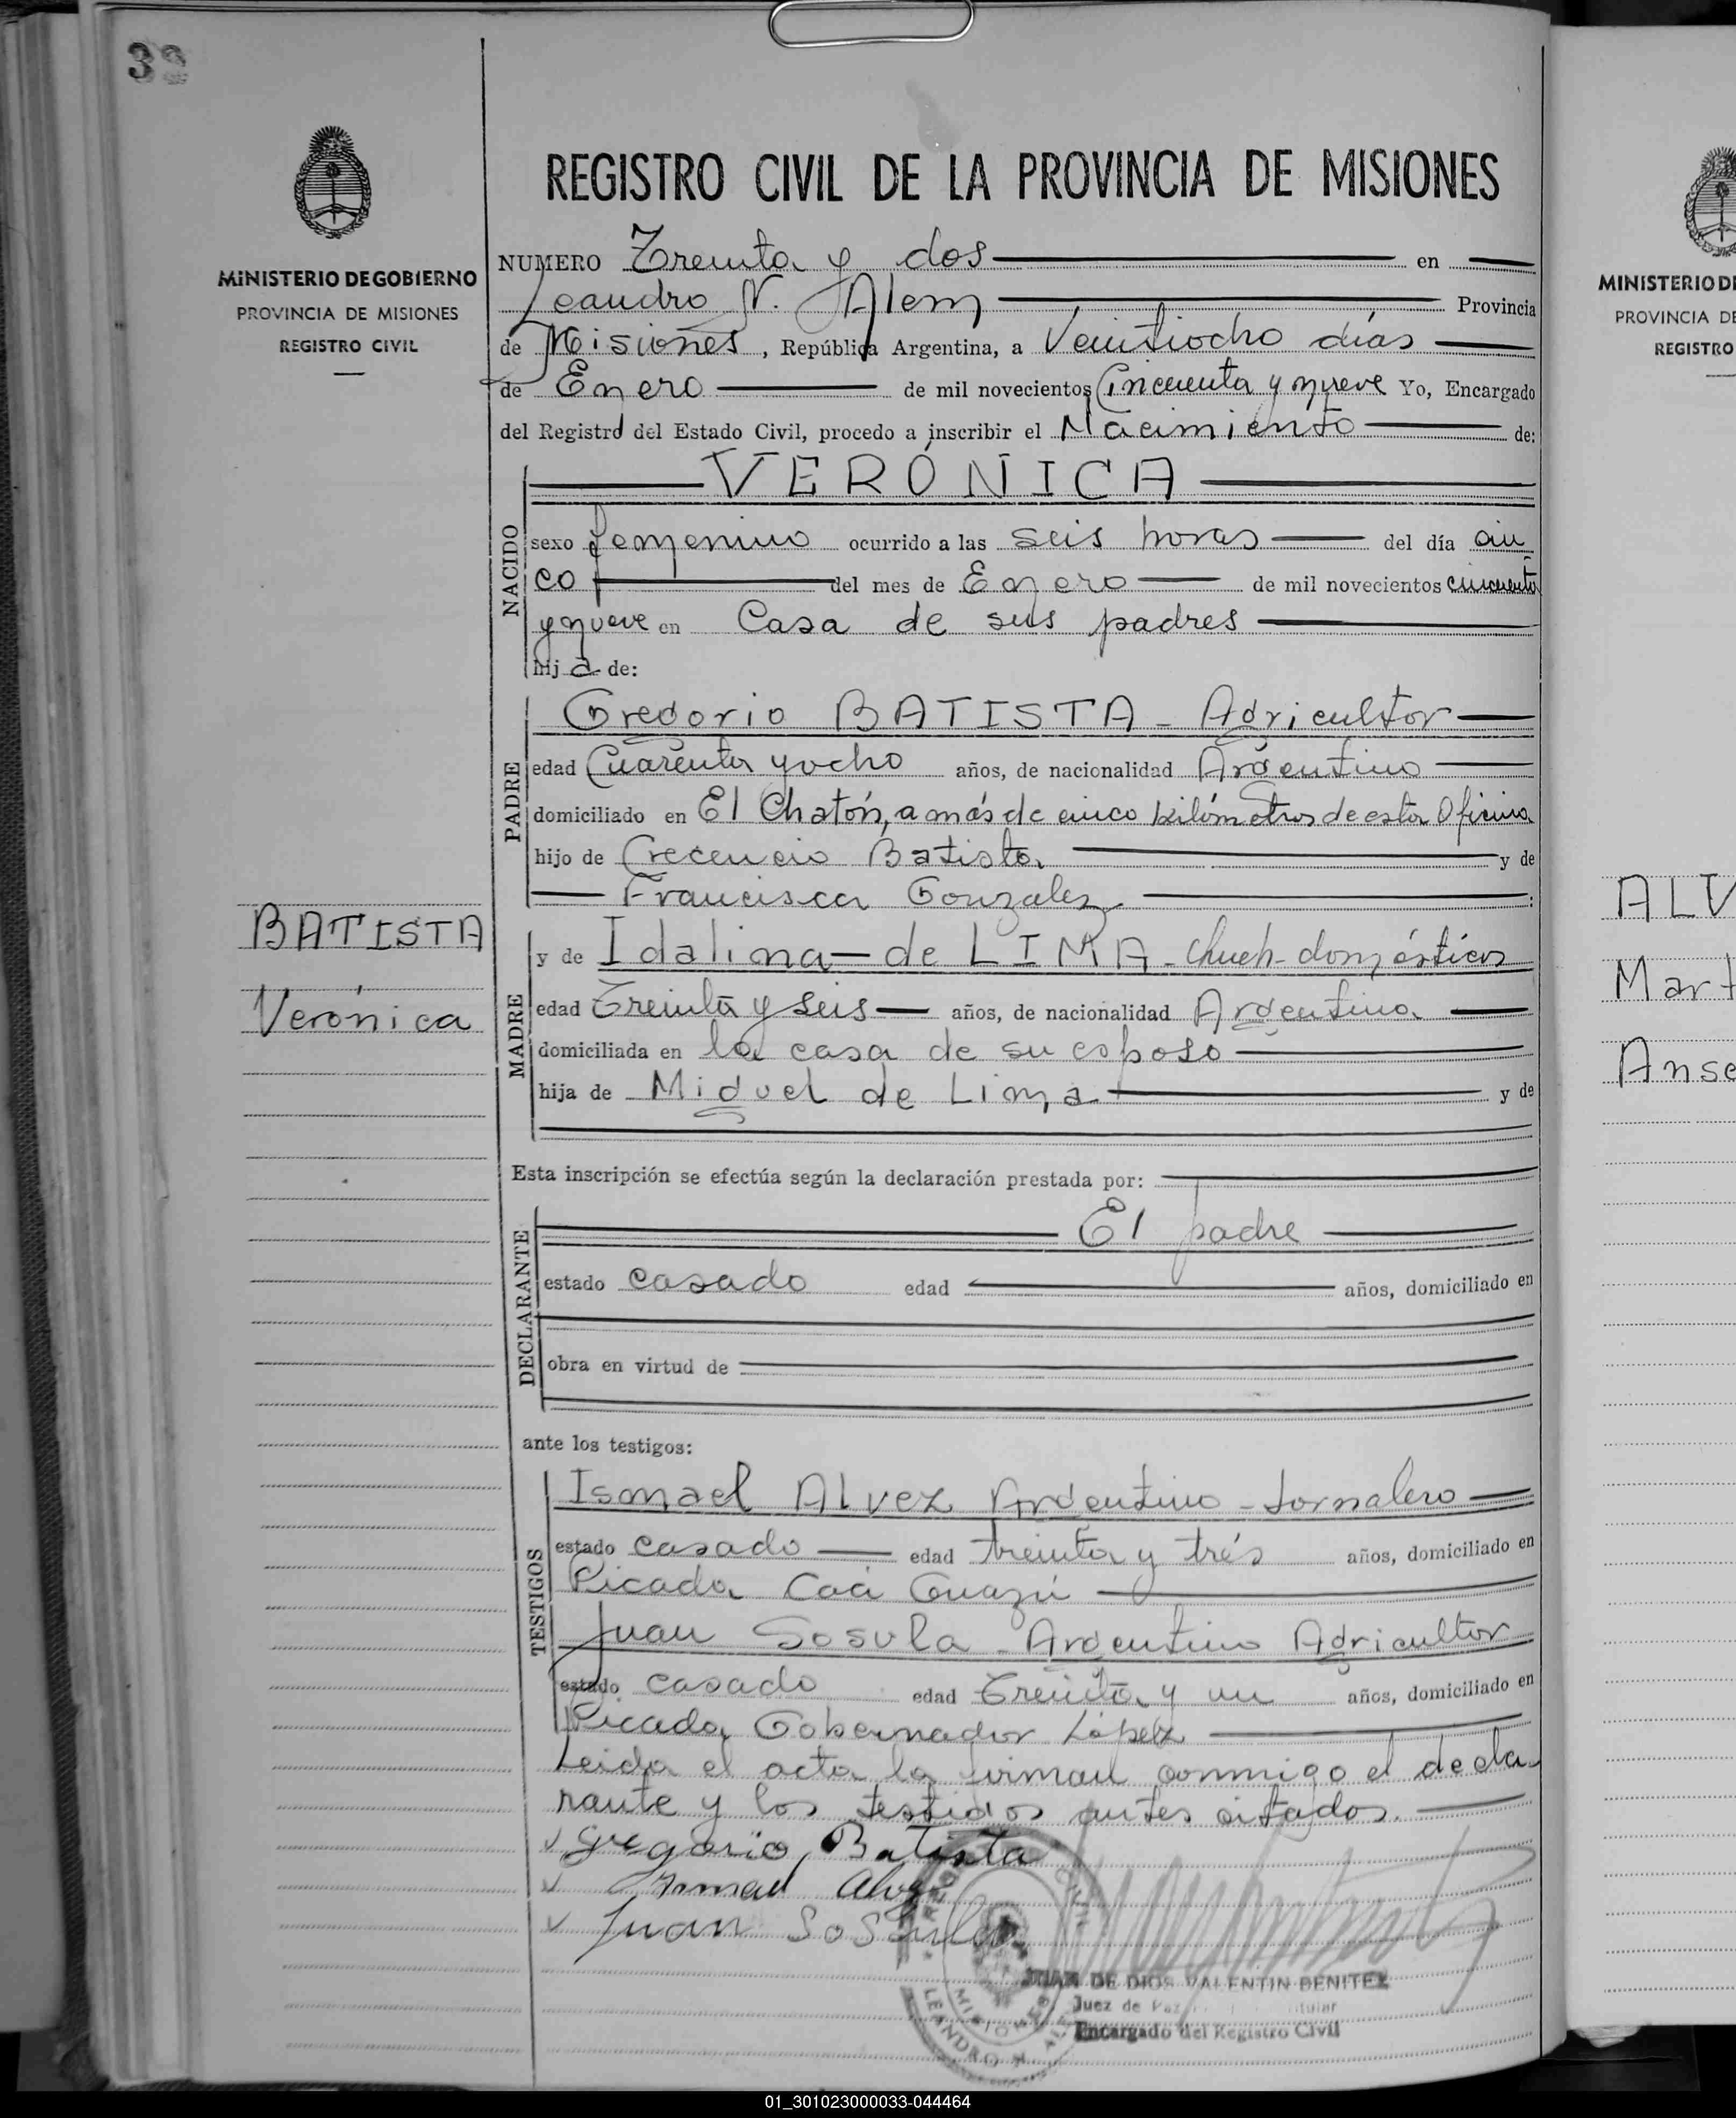 32
MINISTERIO DE GOBIERNO
PROVINCIA DE MISIONES
REGISTRO CIVIL
BATISTA
Verónica
REGISTRO CIVIL DE LA PROVINCIA DE MISIONES
NUMERO Treinta y dos en
Leandro N. Alem Provincia
de Misiones, República Argentina, a Veintiocho días
de Enero de mil novecientos Cincuenta y nueve Yo, Encargado
del Registro del Estado Civil, procedo a inscribir el Nacimiento de:
VERÓNICA
NACIDO
sexo femenino ocurrido a las seis horas del día cin
co del mes de Enero de mil novecientos cincuenta
y nueve en Casa de sus padres
hija de:
PADRE
Gregorio BATISTA - Agricultor
edad Cuarenta y ocho años, de nacionalidad Argentino
domiciliado en El Chatón, a más de cinco kilómetros de esta Oficina
hijo de Crecencio Batista y de
Francisca Gonzalez :
MADRE
y de Idalina de LIMA - domésticos
edad Treinta y seis años, de nacionalidad Argentina
domiciliada en la casa de su esposo
hija de Miguel de Lima y de
Esta inscripción se efectúa según la declaración prestada por:
DECLARANTE
El padre
estado casado edad años, domiciliado en
obra en virtud de
ante los testigos:
TESTIGOS
Ismael Alvez Argentino - Jornalero
estado casado edad treinta y trés años, domiciliado en
Picada Caá Guazú
Juan Sosula - Argentino Agricultor
estado casado edad Treinta y un años, domiciliado en
Picada Gobernador López
Leida el acta la firman conmigo el decla-
rante y los testigos antes citados.
Gregorio Batista
Ismael Alvez
Juan Sosula
JUAN DE DIOS VALENTIN BENITEZ
Juez de Paz Titular
Encargado del Registro Civil
CIVIL
MISIONES
LEANDRO N. ALEM
MINISTERIO DE
PROVINCIA DE
REGISTRO
ALV
Mart
Anse
01_301023000033-044464